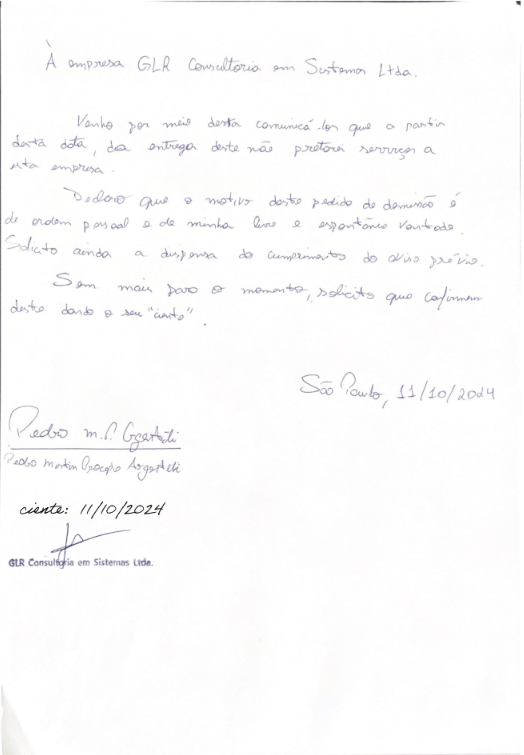 À empresa GLR Consultoria em Sistemas Ltda.
Venho por meio desta comunicá-los que a partir
desta data, da entrega deste não prestarei serviços a
esta empresa.
Declaro que o motivo deste pedido de demissão é
de ordem pessoal e de minha livre e espontânea vontade.
Solicito ainda a dispensa do cumprimento do aviso prévio.
Sem mais para o momento, solicito que confirmem
deste dando o seu "ciente".
São Paulo, 11/10/2024
Pedro M.P.
Pedro Martin
ciente: 11/10/2024
GLR Consultoria em Sistemas Ltda.